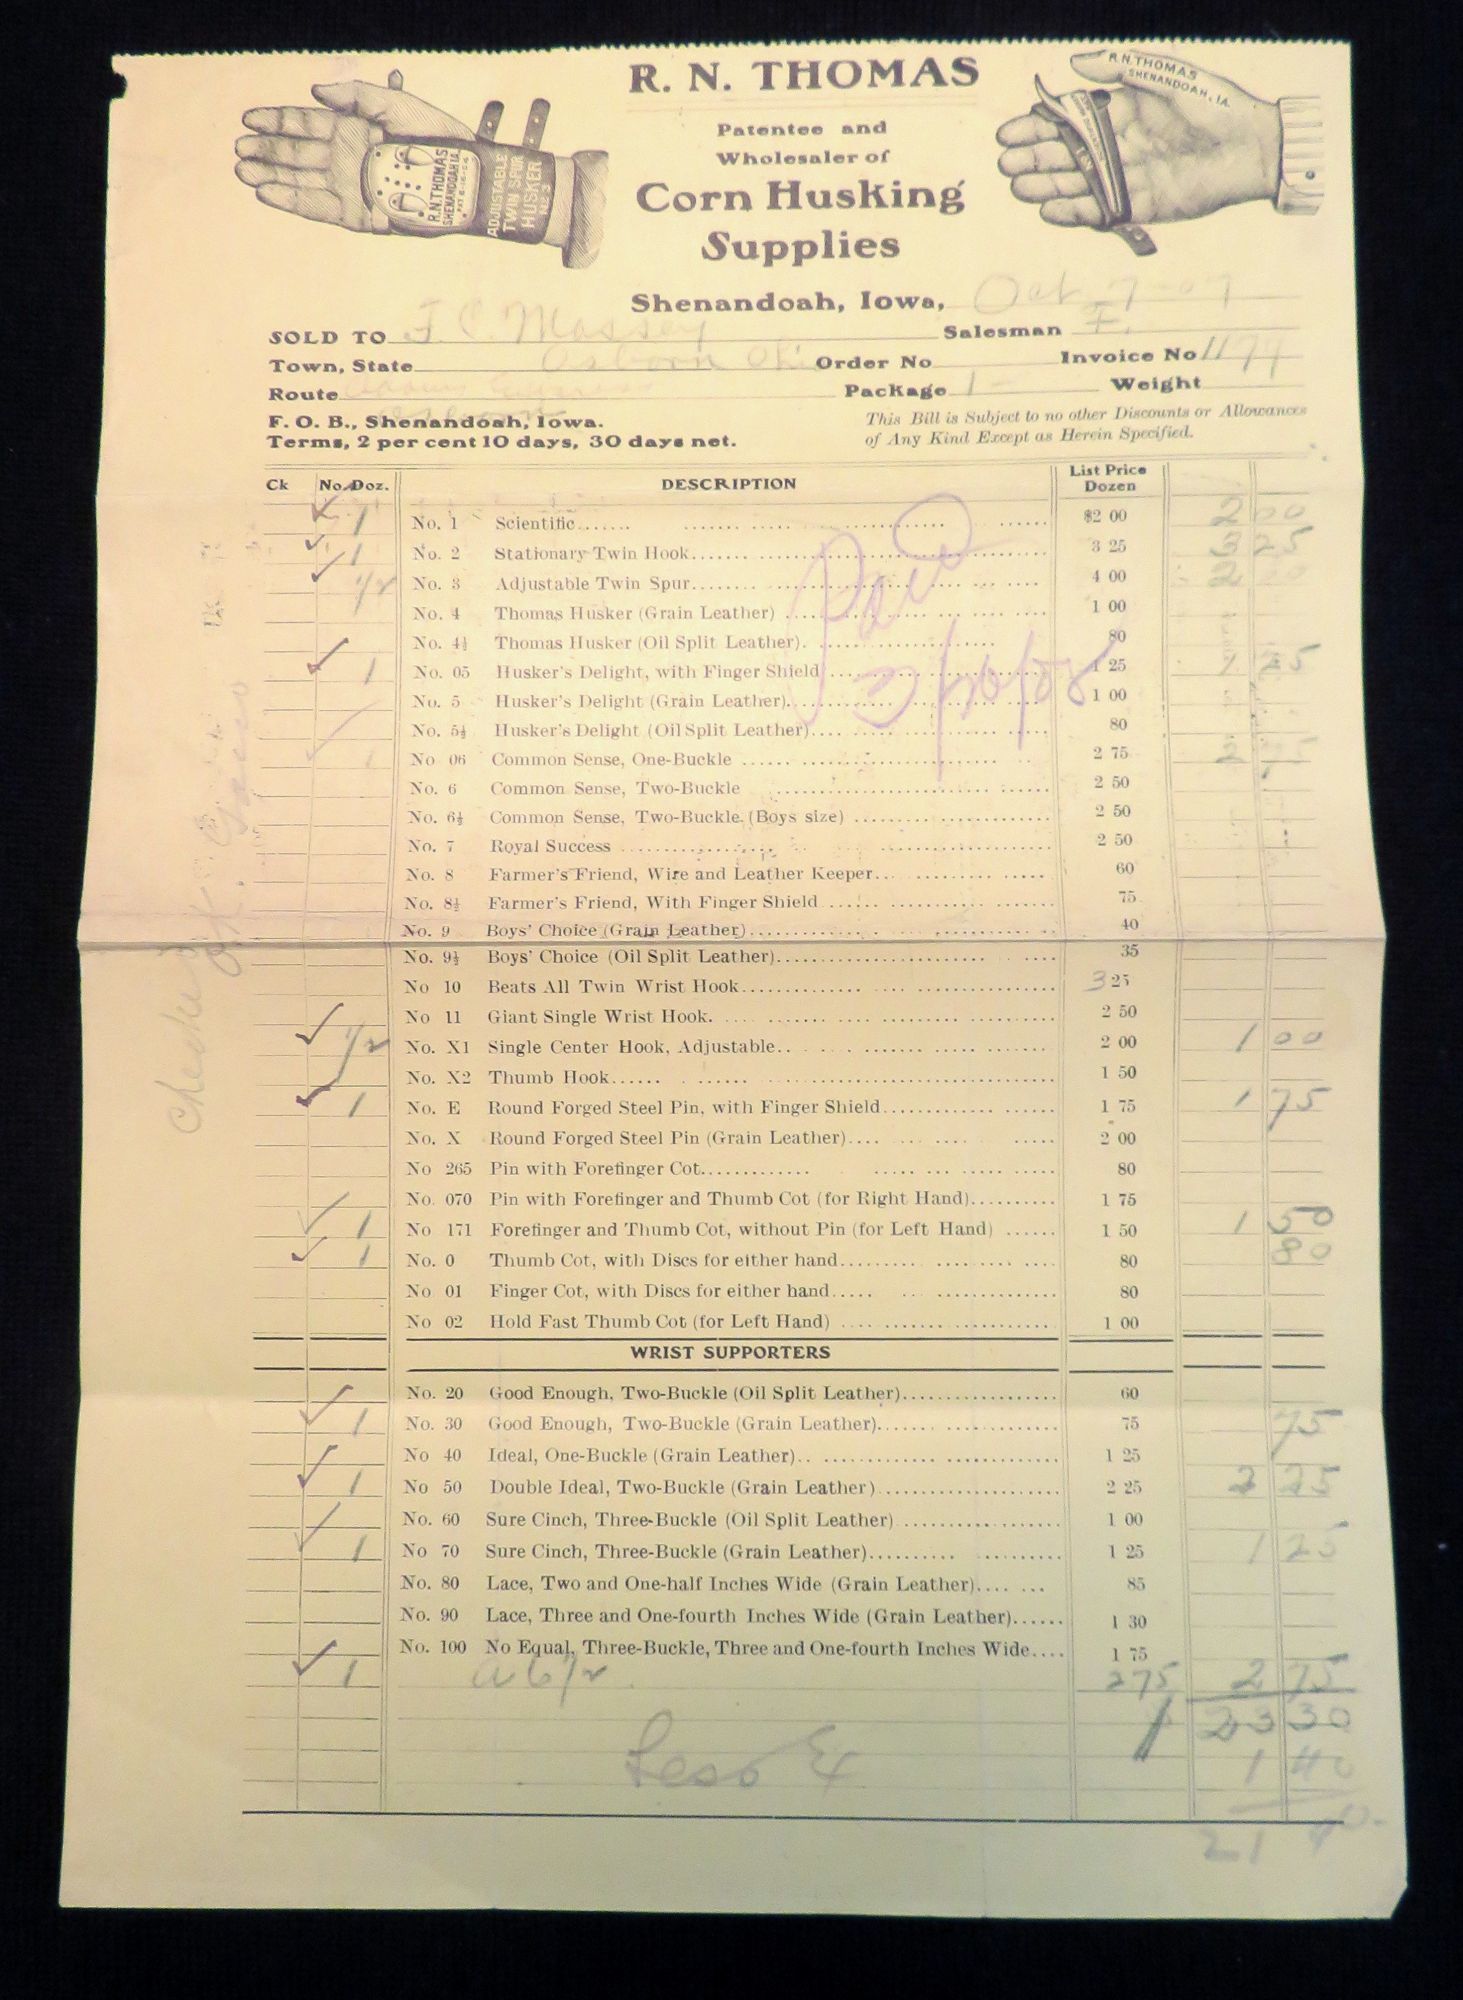 R. N. THOMAS
Patentee and
Wholesaler of
Corn Husking
Supplies
R.N. THOMAS
SHENANDOAH IA.
ADJUSTABLE
TWIN SPUR
HUSKER
No. 3
R.N. THOMAS
SHENANDOAH, IA.
Shenandoah, Iowa, Oct 7-07
SOLD TO F C. Massey Salesman F.
Town, State Osborn Ohio Order No Invoice No 1179
Route Adams Express Package 1 - Weight
F. O. B., Shenandoah, Iowa.
Terms, 2 per cent 10 days, 30 days net.
This Bill is Subject to no other Discounts or Allowances
of Any Kind Except as Herein Specified.
Ck No. Doz. DESCRIPTION List Price Dozen
1 No. 1 Scientific $2 00 2 00
1 No. 2 Stationary Twin Hook 3 25 3 25
1/2 No. 3 Adjustable Twin Spur 4 00 2 00
No. 4 Thomas Husker (Grain Leather) 1 00
No. 4½ Thomas Husker (Oil Split Leather) 80
1 No. 05 Husker's Delight, with Finger Shield 1 25 1 25
No. 5 Husker's Delight (Grain Leather) 1 00
No. 5½ Husker's Delight (Oil Split Leather) 80
1 No 06 Common Sense, One-Buckle 2 75 2 75
No. 6 Common Sense, Two-Buckle 2 50
No. 6½ Common Sense, Two-Buckle (Boys size) 2 50
No. 7 Royal Success 2 50
No. 8 Farmer's Friend, Wire and Leather Keeper 60
No. 8½ Farmer's Friend, With Finger Shield 75
No. 9 Boys' Choice (Grain Leather) 40
No. 9½ Boys' Choice (Oil Split Leather) 35
No 10 Beats All Twin Wrist Hook 3 25
No 11 Giant Single Wrist Hook. 2 50
1/2 No. X1 Single Center Hook, Adjustable 2 00 1 00
No. X2 Thumb Hook 1 50
1 No. E Round Forged Steel Pin, with Finger Shield 1 75 1 75
No. X Round Forged Steel Pin (Grain Leather) 2 00
No 265 Pin with Forefinger Cot 80
No. 070 Pin with Forefinger and Thumb Cot (for Right Hand) 1 75
1 No 171 Forefinger and Thumb Cot, without Pin (for Left Hand) 1 50 1 50
1 No. 0 Thumb Cot, with Discs for either hand 80 80
No 01 Finger Cot, with Discs for either hand 80
No 02 Hold Fast Thumb Cot (for Left Hand) 1 00
WRIST SUPPORTERS
No. 20 Good Enough, Two-Buckle (Oil Split Leather) 60
1 No. 30 Good Enough, Two-Buckle (Grain Leather) 75 75
No 40 Ideal, One-Buckle (Grain Leather) 1 25
1 No 50 Double Ideal, Two-Buckle (Grain Leather) 2 25 2 25
No. 60 Sure Cinch, Three-Buckle (Oil Split Leather) 1 00
1 No 70 Sure Cinch, Three-Buckle (Grain Leather) 1 25 1 25
No. 80 Lace, Two and One-half Inches Wide (Grain Leather) 85
No. 90 Lace, Three and One-fourth Inches Wide (Grain Leather) 1 30
No. 100 No Equal, Three-Buckle, Three and One-fourth Inches Wide 1 75
1 2 75 2 75
23 30
Less Ex 1 40
21 90
Paid
3/10/08
Checked OK.